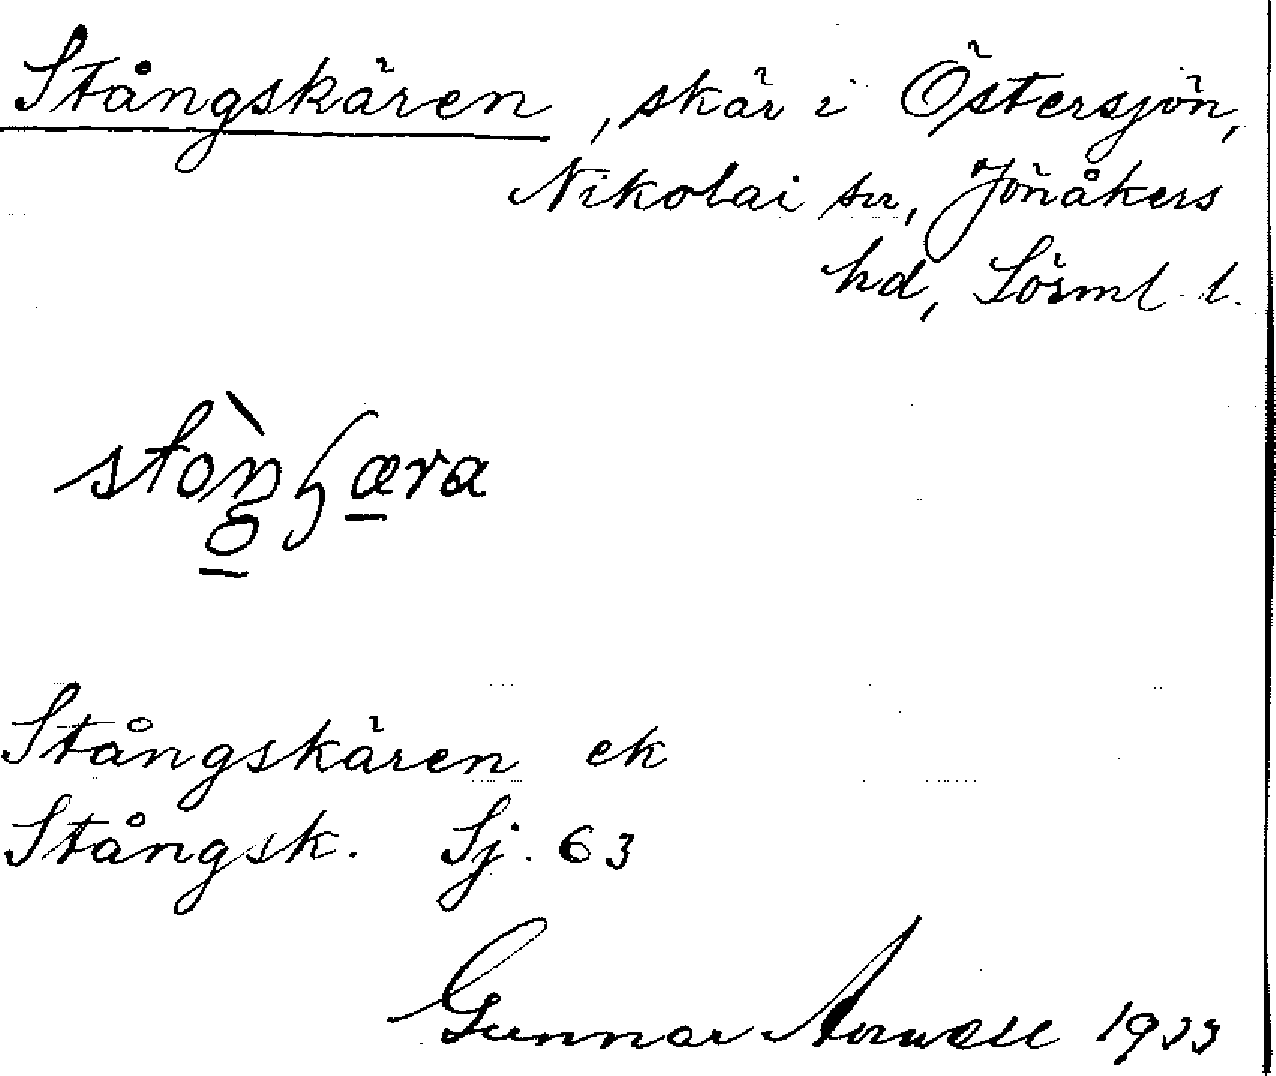 Stångskären, skär i Östersjön,
Nikolai sn, Jönåkers
hd, Sörml l.
Stångskären ek
Stångsk. Sj. 63
Gunnar 1933